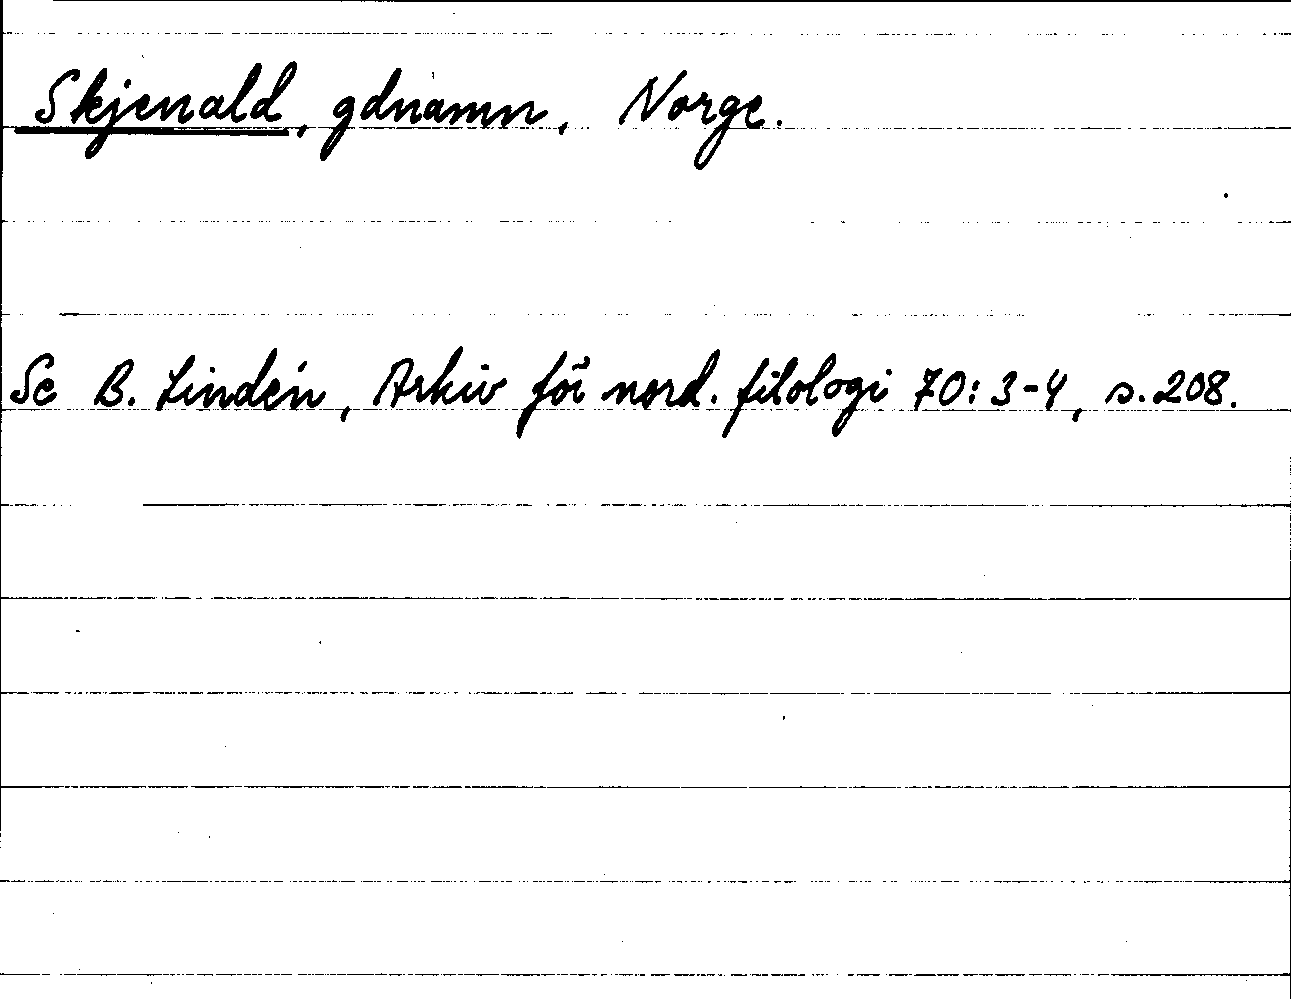 Skjenald, gdnamn, Norge.
Se B. Lindén, Arkiv för nord. filologi 70: 3-4, s. 208.